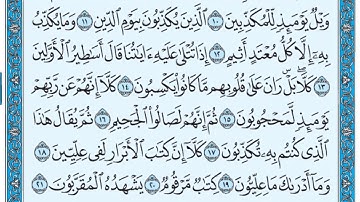 وَيْلٌ يَوْمَئِذٍ لِّلْمُكَذِّبِينَ ١٠ ٱلَّذِينَ يُكَذِّبُونَ بِيَوْمِ ٱلدِّينِ ١١ وَمَا يُكَذِّبُ
بِهِۦٓ إِلَّا كُلُّ مُعْتَدٍ أَثِيمٍ ١٢ إِذَا تُتْلَىٰ عَلَيْهِ ءَايَـٰتُنَا قَالَ أَسَـٰطِيرُ ٱلْأَوَّلِينَ
١٣ كَلَّا ۖ بَلْ ۜ رَانَ عَلَىٰ قُلُوبِهِم مَّا كَانُوا۟ يَكْسِبُونَ ١٤ كَلَّآ إِنَّهُمْ عَن رَّبِّهِمْ
يَوْمَئِذٍ لَّمَحْجُوبُونَ ١٥ ثُمَّ إِنَّهُمْ لَصَالُوا۟ ٱلْجَحِيمِ ١٦ ثُمَّ يُقَالُ هَـٰذَا
ٱلَّذِى كُنتُم بِهِۦ تُكَذِّبُونَ ١٧ كَلَّآ إِنَّ كِتَـٰبَ ٱلْأَبْرَارِ لَفِى عِلِّيِّينَ ١٨
وَمَآ أَدْرَىٰكَ مَا عِلِّيُّونَ ١٩ كِتَـٰبٌ مَّرْقُومٌ ٢٠ يَشْهَدُهُ ٱلْمُقَرَّبُونَ ٢١